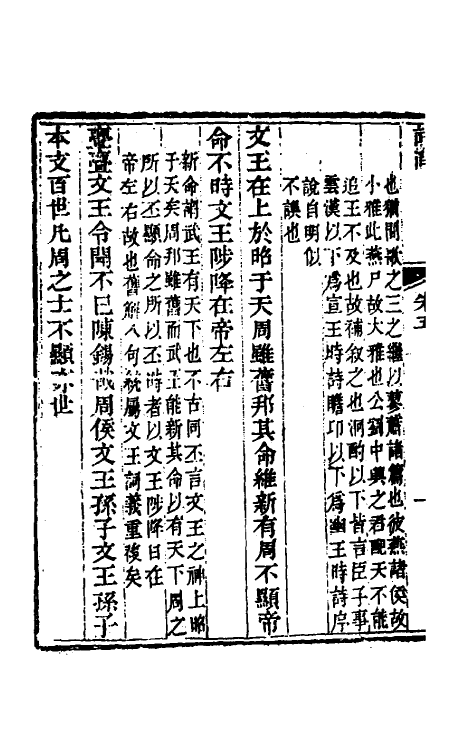 也猶間歌之三之繼以蓼蕭諸篇也彼燕諸侯故
小雅此燕尸故大雅也公劉中興之君配天不能
追王不及也故補叙之也泂酌以下皆言臣子事
雲漢以下爲宣王時詩瞻卬以下爲幽王時詩序
說自明似
不誤也
文王在上於昭于天周雖舊邦其命維新有周不顯帝
命不時文王陟降在帝左右
新命謂武王有天下也不古同丕言文王之神上昭
于天矣周邦雖舊而武王能新其命以有天下周之
所以丕顯命之所以丕時者以文王陟降日在
帝左右故也舊解八句統屬文王詞義重複矣
亹亹文王令聞不已陳錫哉周侯文王孫子文王孫子
本支百世凡周之士不顯亦世
卷五
一